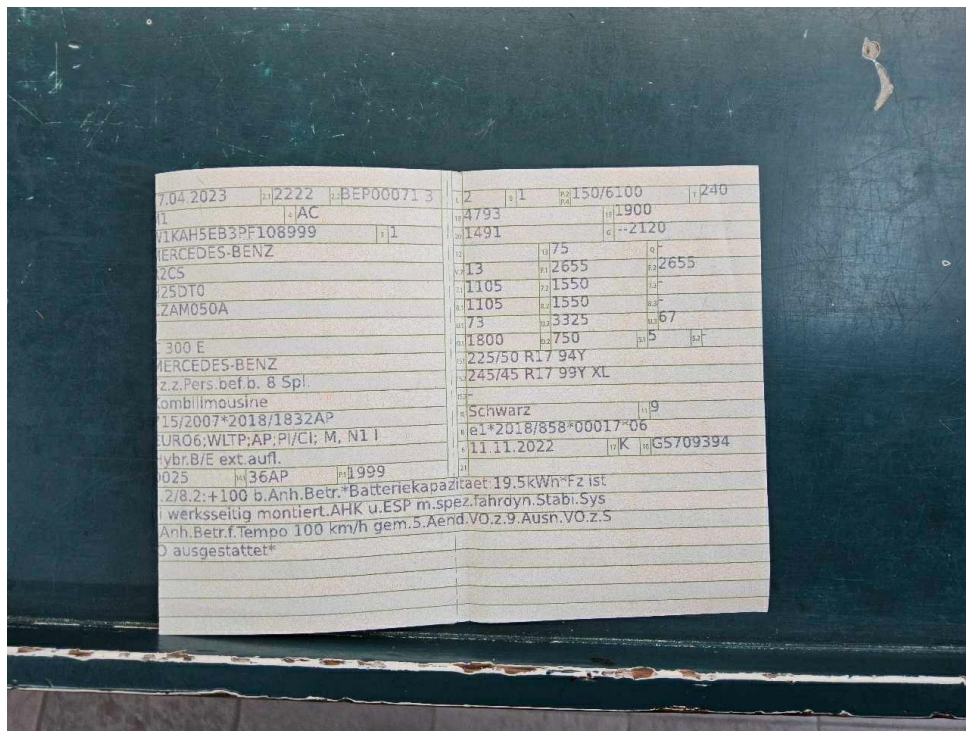 7.04.2023 2.1 2222 2.2 BEP00071 3
M1 4 AC
W1KAH5EB3PF108999 3 1
MERCEDES-BENZ
R2CS
025DT0
ZZAM050A
E 300 E
MERCEDES-BENZ
z.z.Pers.bef.b. 8 Spl.
Kombilimousine
715/2007*2018/1832AP
EURO6;WLTP;AP;PI/CI; M, N1 I
Hybr.B/E ext.aufl.
0025 14.1 36AP P.1 1999
.2/8.2:+100 b.Anh.Betr.*Batteriekapazitaet 19.5kWh*Fz ist
i werksseitig montiert.AHK u.ESP m.spez.fahrdyn.Stabi.Sys
Anh.Betr.f.Tempo 100 km/h gem.5.Aend.VO.z.9.Ausn.VO.z.S
O ausgestattet*
L 2 9 1 P.2 P.4 150/6100 T 240
18 4793 19 1900
20 1491 G --2120
12 13 75 Q -
V.7 13 F.1 2655 F.2 2655
7.1 1105 7.2 1550 7.3 -
8.1 1105 8.2 1550 8.3 -
U.1 73 U.2 3325 U.3 67
O.1 1800 O.2 750 S.1 5 S.2 -
15.1 225/50 R17 94Y
15.2 245/45 R17 99Y XL
15.3 -
R Schwarz 11 9
K e1*2018/858*00017*06
6 11.11.2022 17 K 16 G5709394
21